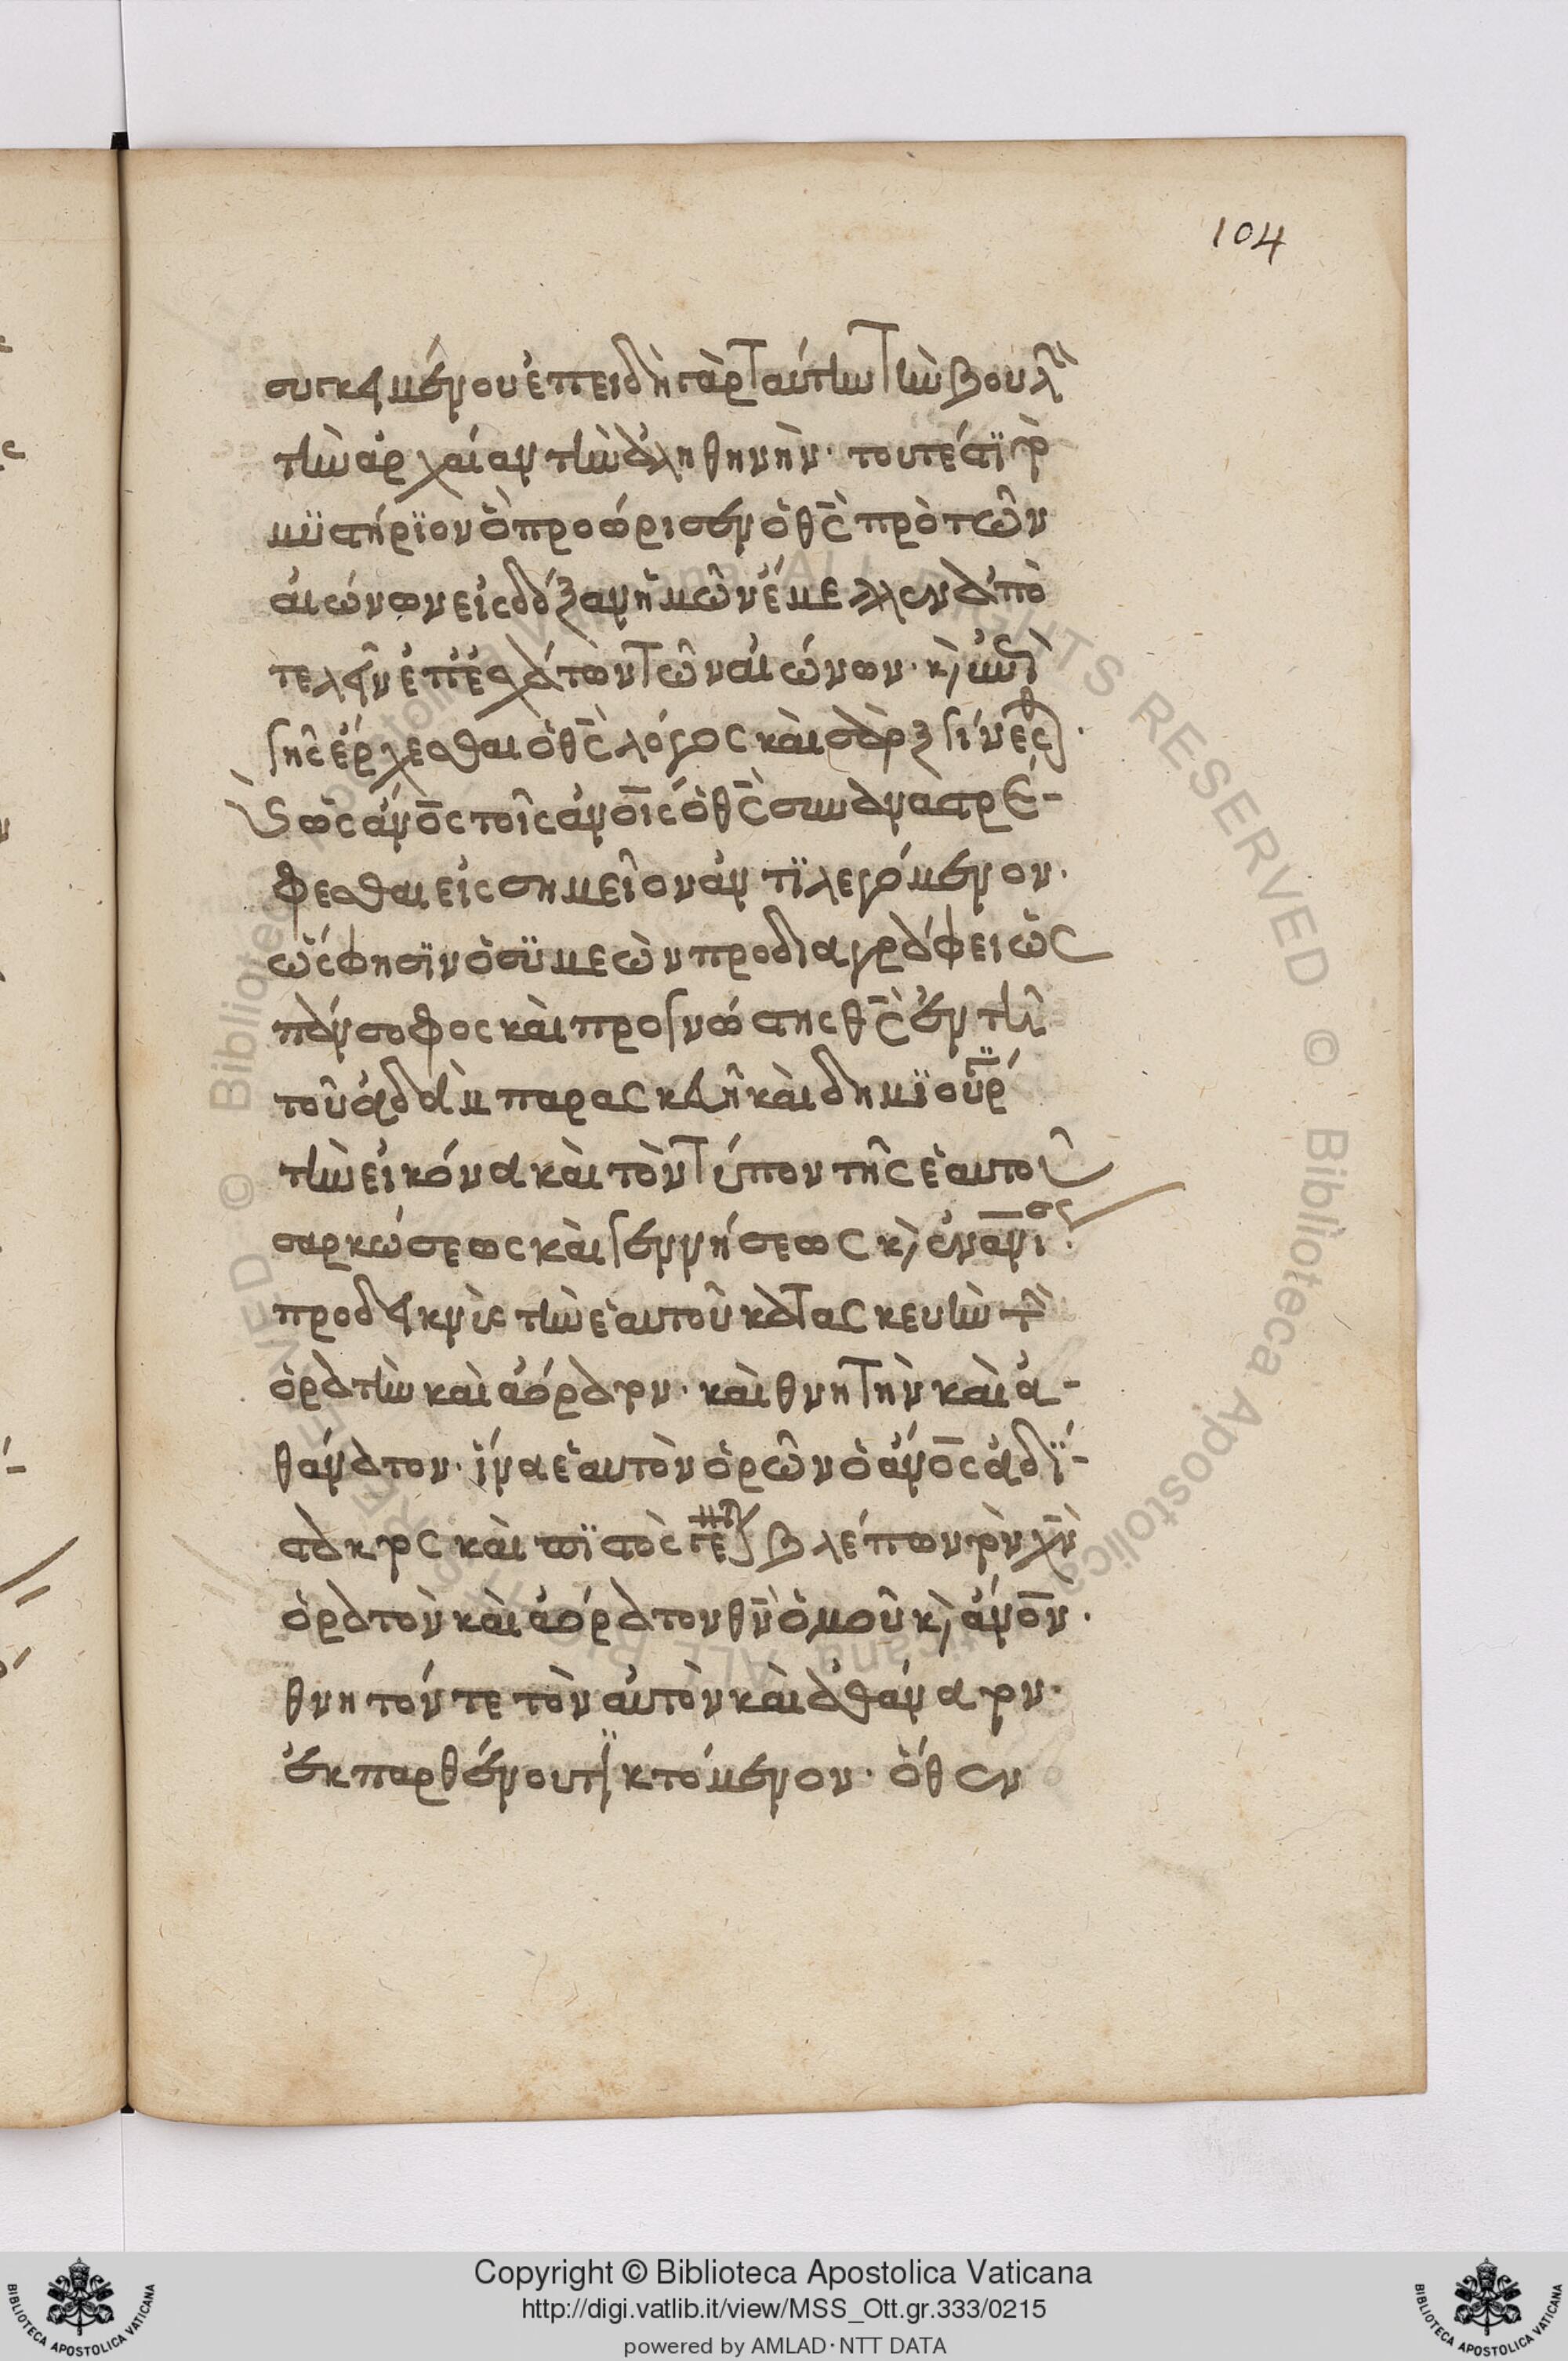 104
συγκειμένου ἐπειδὴ γὰρ ταύτην τὴν βουλὴ
τὴν ἀρχαίαν τὴν ἀληθηνὴν· τουτέστϊ τὸ
μϋστήρϊον ὃ προώρισεν ὁ θς̅ πρὸ τῶν
αἰώνων εἰς δόξαν ἡμῶν ἔμελλεν ἀπο
τελεῖν ἐπ' ἐσχάτων τῶν αἰώνων· κὶ ἐπὶ
γῆς ἔρχεσθαι ὁ θς̅ λόγος καὶ σὰρξ γίνεσθ·
κ ὡς ἄνο̅ς τοῖς ἀνο̅ις ὁ θς̅ συναναστρέ-
φεσθαι εἰς σημεῖον ἀντϊλεγόμενον·
ὥς φησϊν ὁ σϋμεὼν προδιαγράφει ὡς
πάνσοφος καὶ προγνώστης θς̅ ἐν τῆ
τοῦ ἀδὰμ παρασκευῆ καὶ δημϊουρ
τὴν εἰκόνα καὶ τὸν τύπον τῆς ἑαυτοῦ
σαρκώσεως καὶ γεννήσεως κὶ ἐναν̅ι σς·
προδεικνὺς τὴν ἑαυτοῦ κατασκευὴν τὴ
ὁρατὴν καὶ ἀόρατον· καὶ θνητὴν καὶ ἀ-
θάνατον· ἵνα ἑαυτὸν ὁρῶν ὁ ἄνο̅ς ἀδϊ-
στακτος καὶ πϊστὸς βλέπων τὸν χν̅
ὁρατὸν καὶ ἀόρατον θν̅ ὁμοῦ κὶ ἄνο̅ν·
θνητόν τε τὸν αὐτὸν καὶ ἀθάνατον·
ἐκ παρθένου τϊκτόμενον· ὅθεν
Copyright © Biblioteca Apostolica Vaticana
http://digi.vatlib.it/view/MSS_Ott.gr.333/0215
powered by AMLAD·NTT DATA